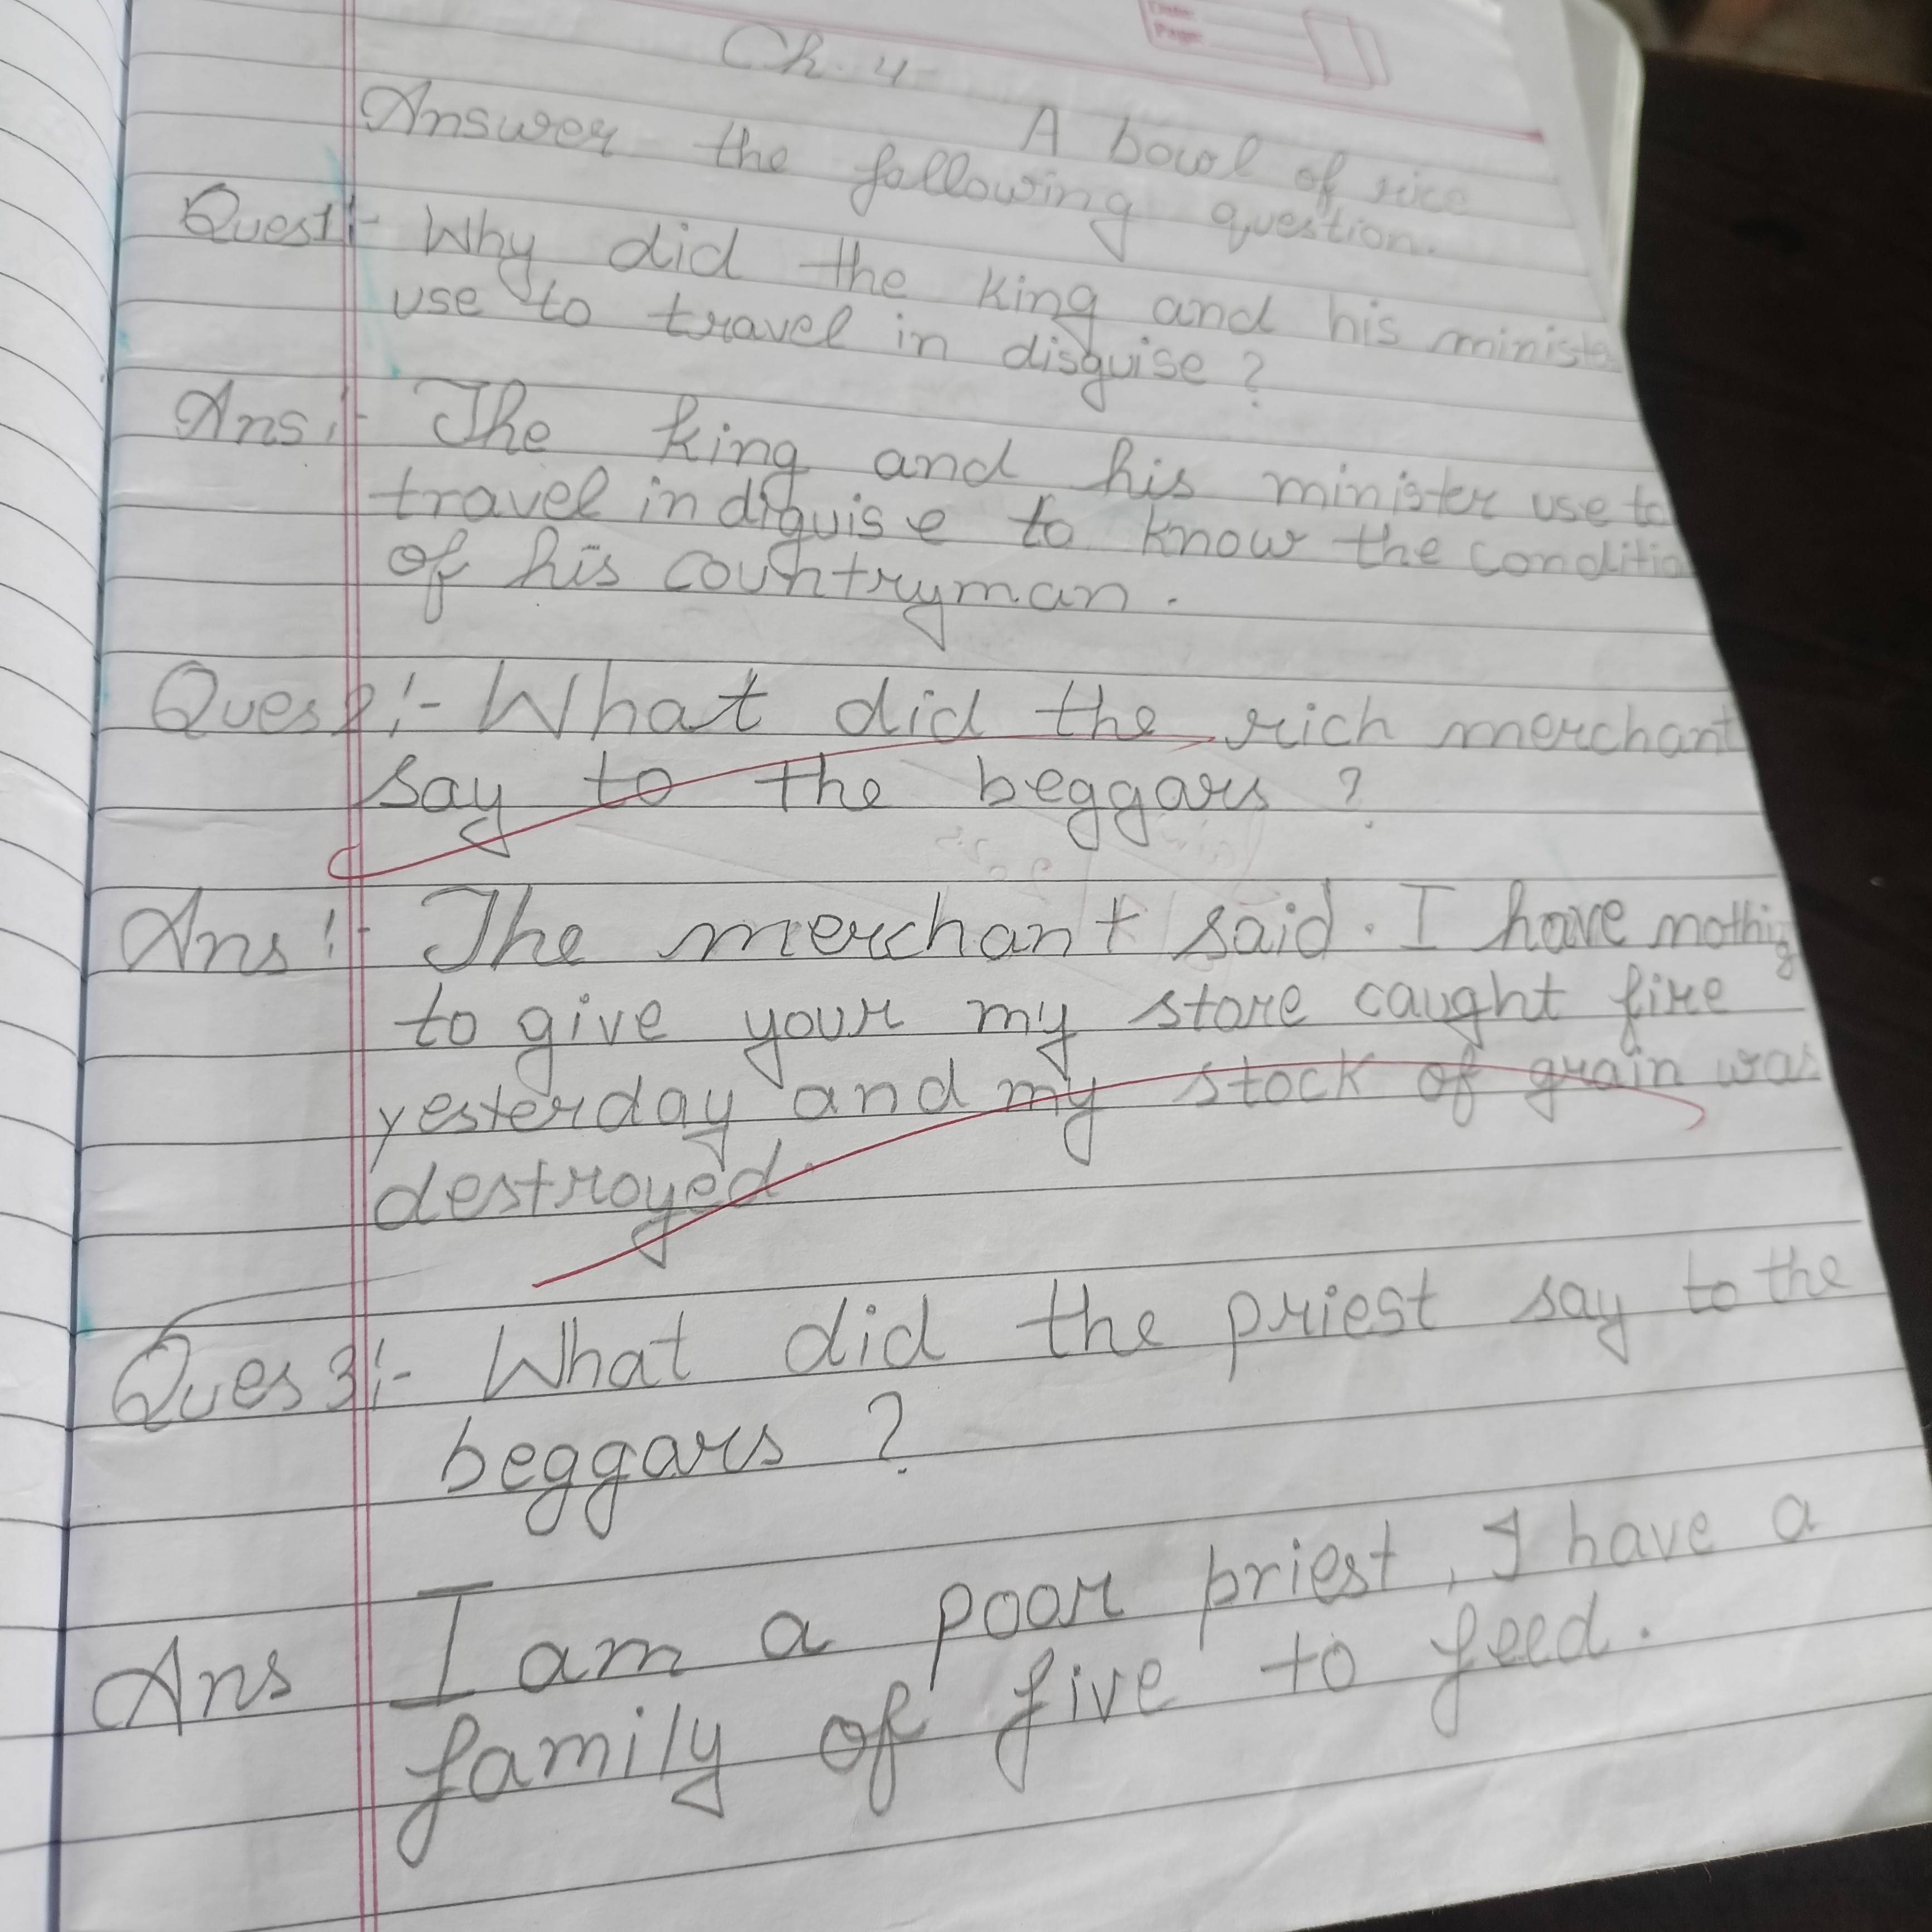 Date:
Page:
Ch. 4
A bowl of rice
Answer the following question.
Ques1:- Why did the king and his ministe
use to travel in disguise ?
Ans:- The king and his minister use to
travel in diguise to know the conditio
of his countryman.
Ques2:- What did the rich merchant
say to the beggars ?
Ans:- The merchant said. I have nothig
to give your my store caught fire
yesterday and my stock of grain was
destroyed.
Ques3:- What did the priest say to the
beggars ?
Ans I am a poor priest, I have a
family of five to feed.